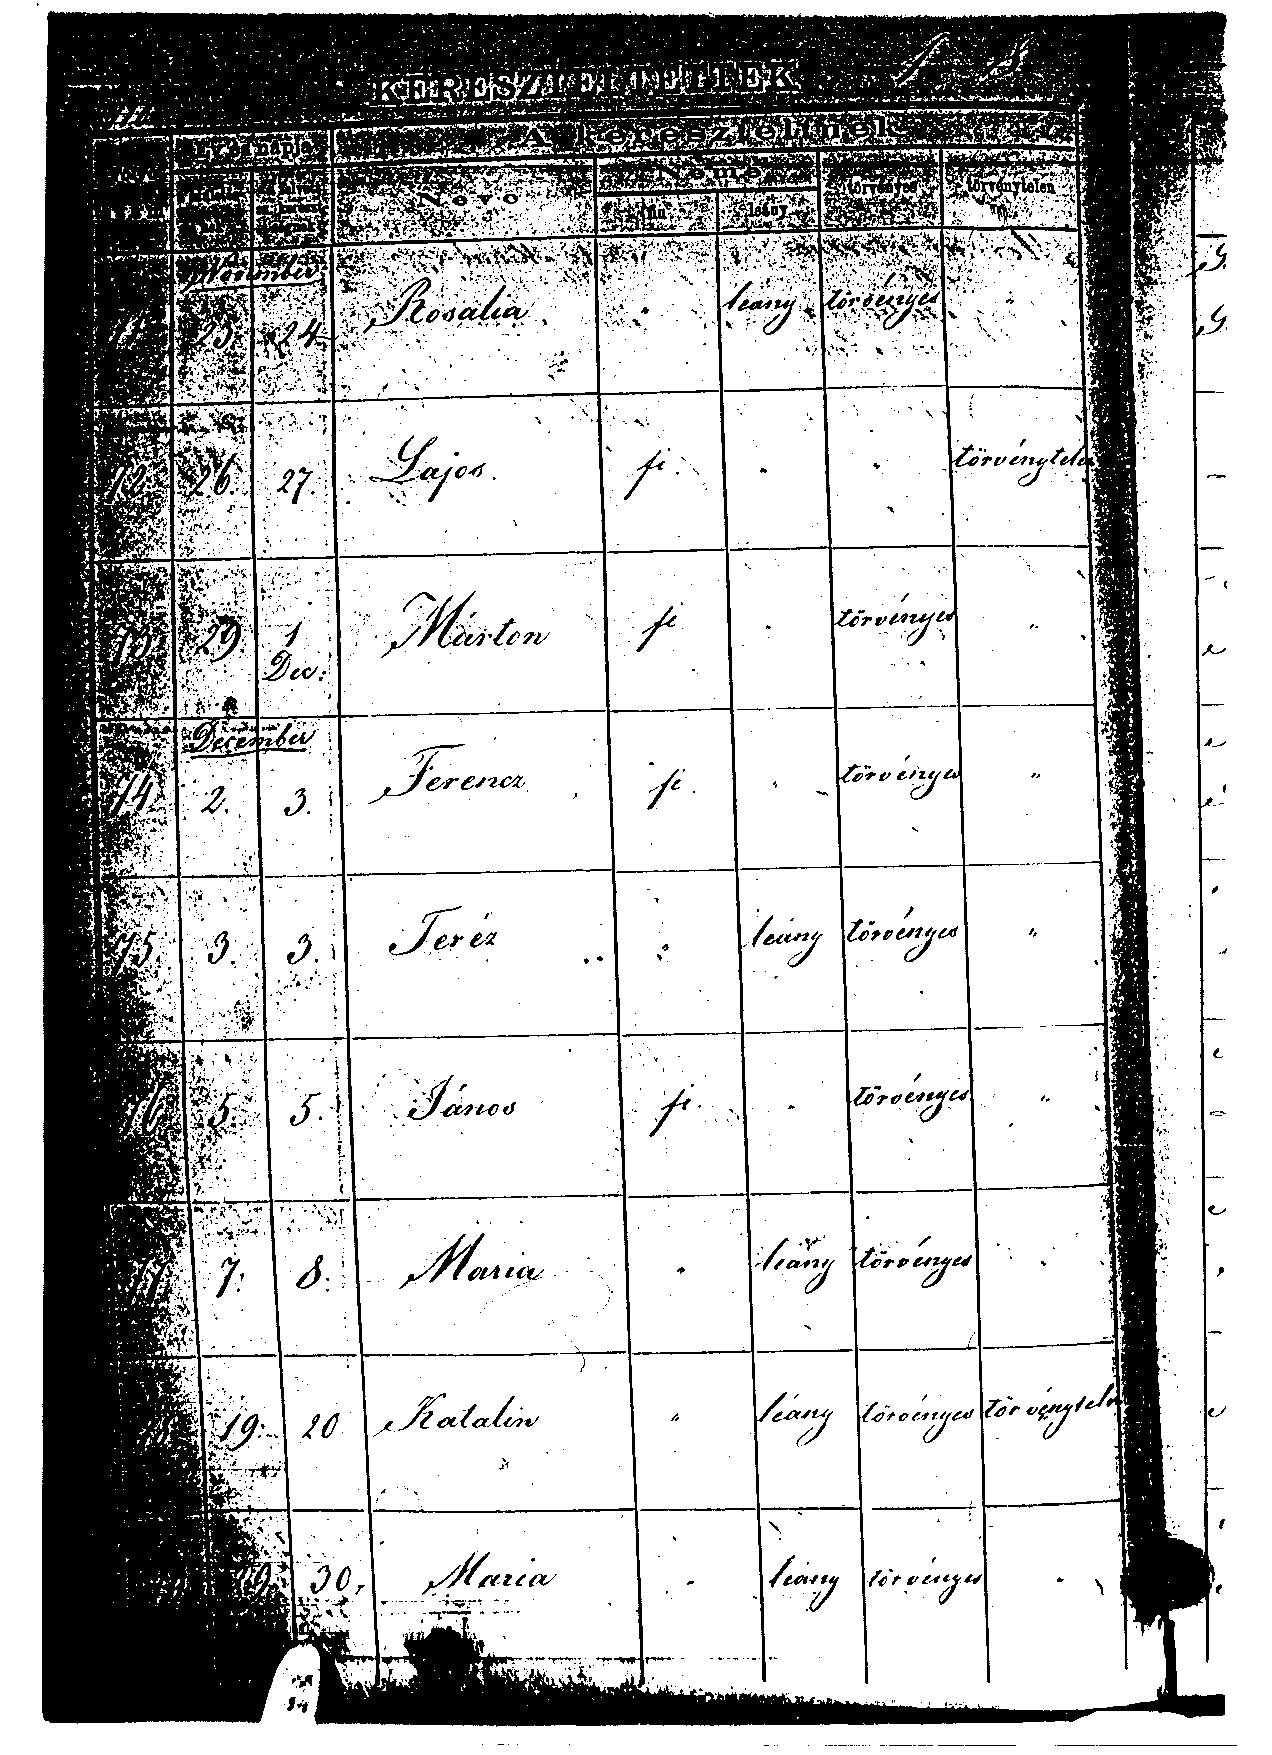 KERESZTELTETTEK
A kereszteltnek
Neve
Neme
törvényes
törvénytelen
fiu
leány
November
23. 24. Rosalia . leány törvényes "
72. 26. 27. Lajos. fi. . . törvénytelen
73. 29 1 Márton fi . törvényes "
Dec:
December
74. 2. 3. Ferencz fi. . törvényes "
75. 3. 3. Teréz " leány törvényes "
76. 5. 5. János fi. . törvényes "
77. 7. 8. Maria . leány törvényes .
78. 19. 20 Katalin " leány törvényes törvénytelen
29. 30. Maria . leány törvényes .